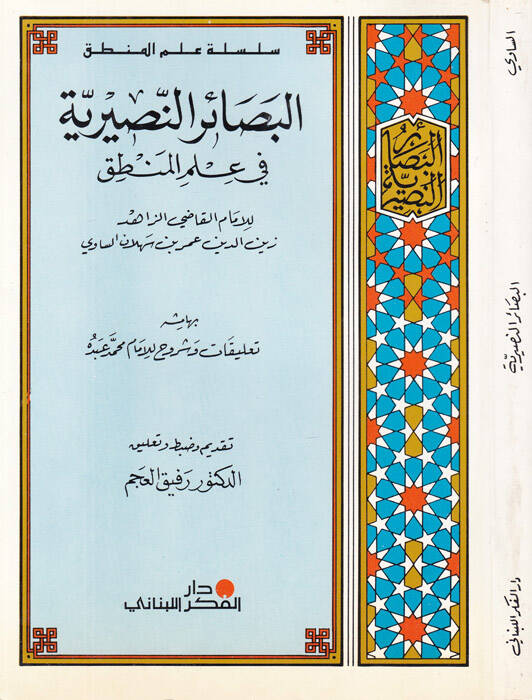 سلسلة علم المنطق
البَصَائر النَّصيريّة
في عِلمِ المَنطِق
للامام القاضي الزاهد
زين الدين عمر بن سهلان الساوي
بهامشه
تعليقات وشروح للامام محمّد عَبدُه
تقديم وضبط وتعليق
الدكتور رفيق العجم
دار
الفكر اللبناني
البصائر
النصيرية
الساوي
البصائر النصيريّة
دار الفكر اللبناني